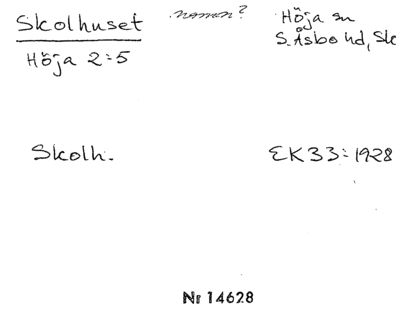 Skolhuset
namn?
Höja sn
S. Åsbo hd, Sk
Höja 2:5
Skolh.
EK33:1928
Nr 14628